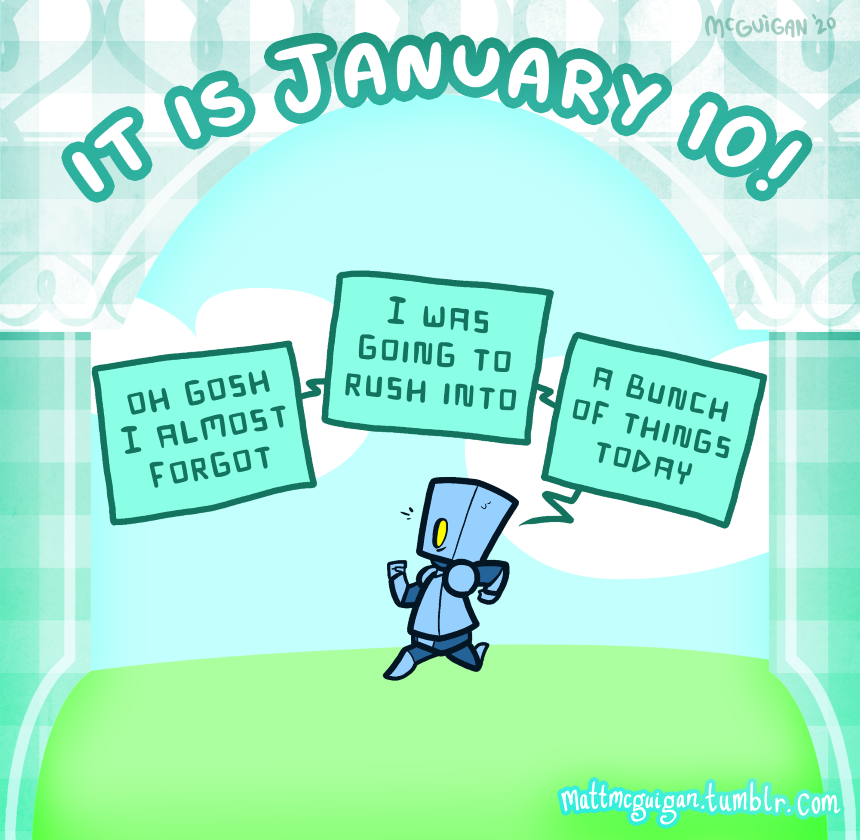 McGUiGAN '20
IT IS JANUARY 10!
OH GOSH
I ALMOST
FORGOT
I WAS
GOING TO
RUSH INTO
A BUNCH
OF THINGS
TODAY
mattmcguigan.tumblr.com